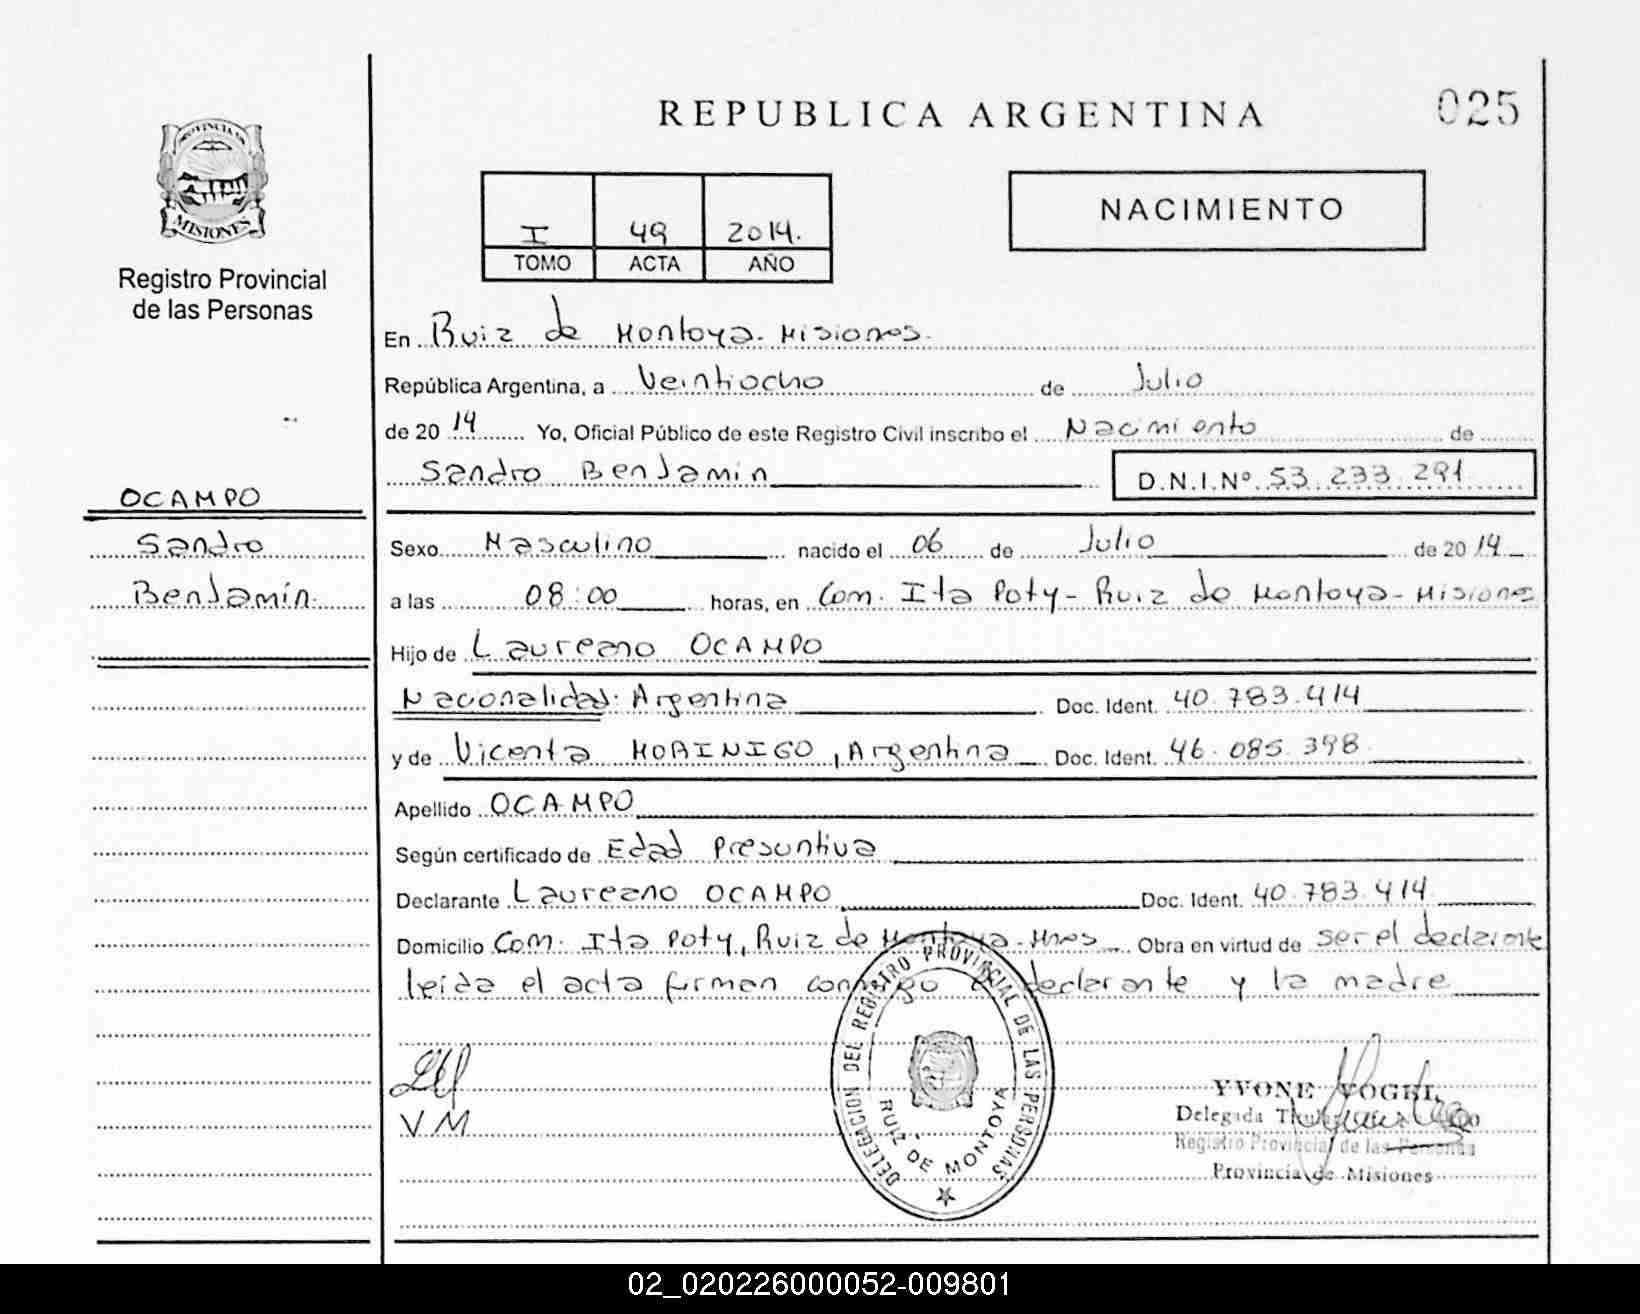 REPUBLICA ARGENTINA
025
PROVINCIA DE
MISIONES
Registro Provincial
de las Personas
I 49 2014.
TOMO ACTA AÑO
NACIMIENTO
En Ruiz de Montoya - Misiones.
República Argentina, a Veintiocho de Julio
de 20 14 Yo, Oficial Público de este Registro Civil inscribo el Nacimiento de
Sandro Benjamin D.N.I.Nº 53.233.291
OCAMPO
Sandro
Benjamín.
Sexo Masculino nacido el 06 de Julio de 20 14
a las 08:00 horas, en Com. Ita Poty - Ruiz de Montoya - Misiones
Hijo de Laureano OCAMPO
Nacionalidad: Argentina Doc. Ident. 40.783.414
y de Vicenta MORINIGO, Argentina Doc. Ident. 46.085.398
Apellido OCAMPO
Según certificado de Edad Presuntiva
Declarante Laureano OCAMPO Doc. Ident. 40.783.414
Domicilio Com. Ita Poty, Ruiz de Montoya - Mnes Obra en virtud de ser el declarante
leída el acta firman conmigo el declarante y la madre
VM
DELEGACION DEL REGISTRO PROVINCIAL DE LAS PERSONAS
RUIZ DE MONTOYA
YVONE VOGEL
Delegada
Registro Provincial de las Personas
Provincia de Misiones
02_020226000052-009801